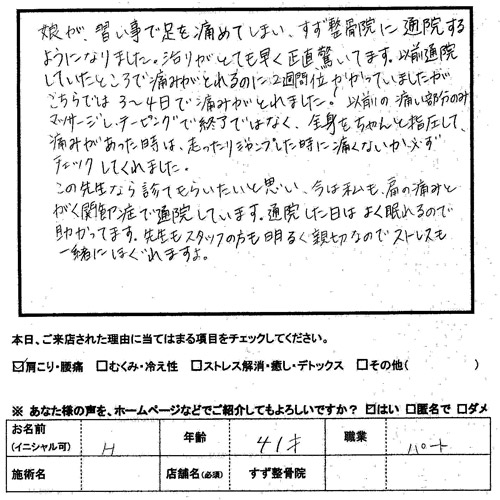 娘が、習い事で足を痛めてしまい、すず整骨院に通院する
ようになりました。治りがとても早く正直驚いてます。以前通院
していたところで痛みがとれるのに2週間位かかっていましたが
こちらでは3〜4日で痛みがとれました。以前の痛い部分のみ
マッサージし、テーピングで終了ではなく、全身をちゃんと指圧して、
痛みがあった時は、走ったりジャンプした時に痛くないか必ず
チェックしてくれました。
この先生なら診てもらいたいと思い、今は私も、肩の痛みと
がく関節症で通院しています。通院した日はよく眠れるので
助かってます。先生もスタッフの方も明るく親切なのでストレスも
一緒にほぐれますよ。
本日、ご来店された理由に当てはまる項目をチェックしてください。
☑肩こり・腰痛 □むくみ・冷え性 □ストレス解消・癒し・デトックス □その他( )
※ あなた様の声を、ホームページなどでご紹介してもよろしいですか? ☑はい □匿名で □ダメ
お名前(イニシャル可) H 年齢 41才 職業 パート
施術名 店舗名(必須) すず整骨院